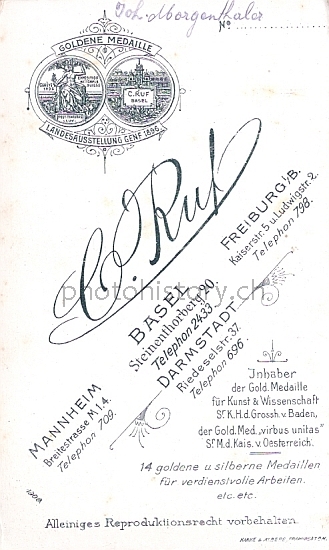 Joh. Morgenthaler
No
GOLDENE MEDAILLE
C. RUF
BASEL
LANDESAUSSTELLUNG GENF 1896
C. Ruf
FREIBURG i/B.
Kaiserstr. 5 u. Ludwigstr. 2.
Telephon 798.
BASEL
Steinenthorberg 20
Telephon 2433
DARMSTADT
Riedeselstr. 37.
Telephon 696.
MANNHEIM
Breitestrasse M 1,4.
Telephon 709.
photohistory.ch
Inhaber
der Gold. Medaille
für Kunst & Wissenschaft
Sr. K.H.d. Grossh. v. Baden,
der Gold. Med. „virbus unitas"
Sr. M.d. Kais. v. Oesterreich.
14 goldene u silberne Medaillen
für verdienstvolle Arbeiten.
etc. etc.
Alleiniges Reproduktionsrecht vorbehalten.